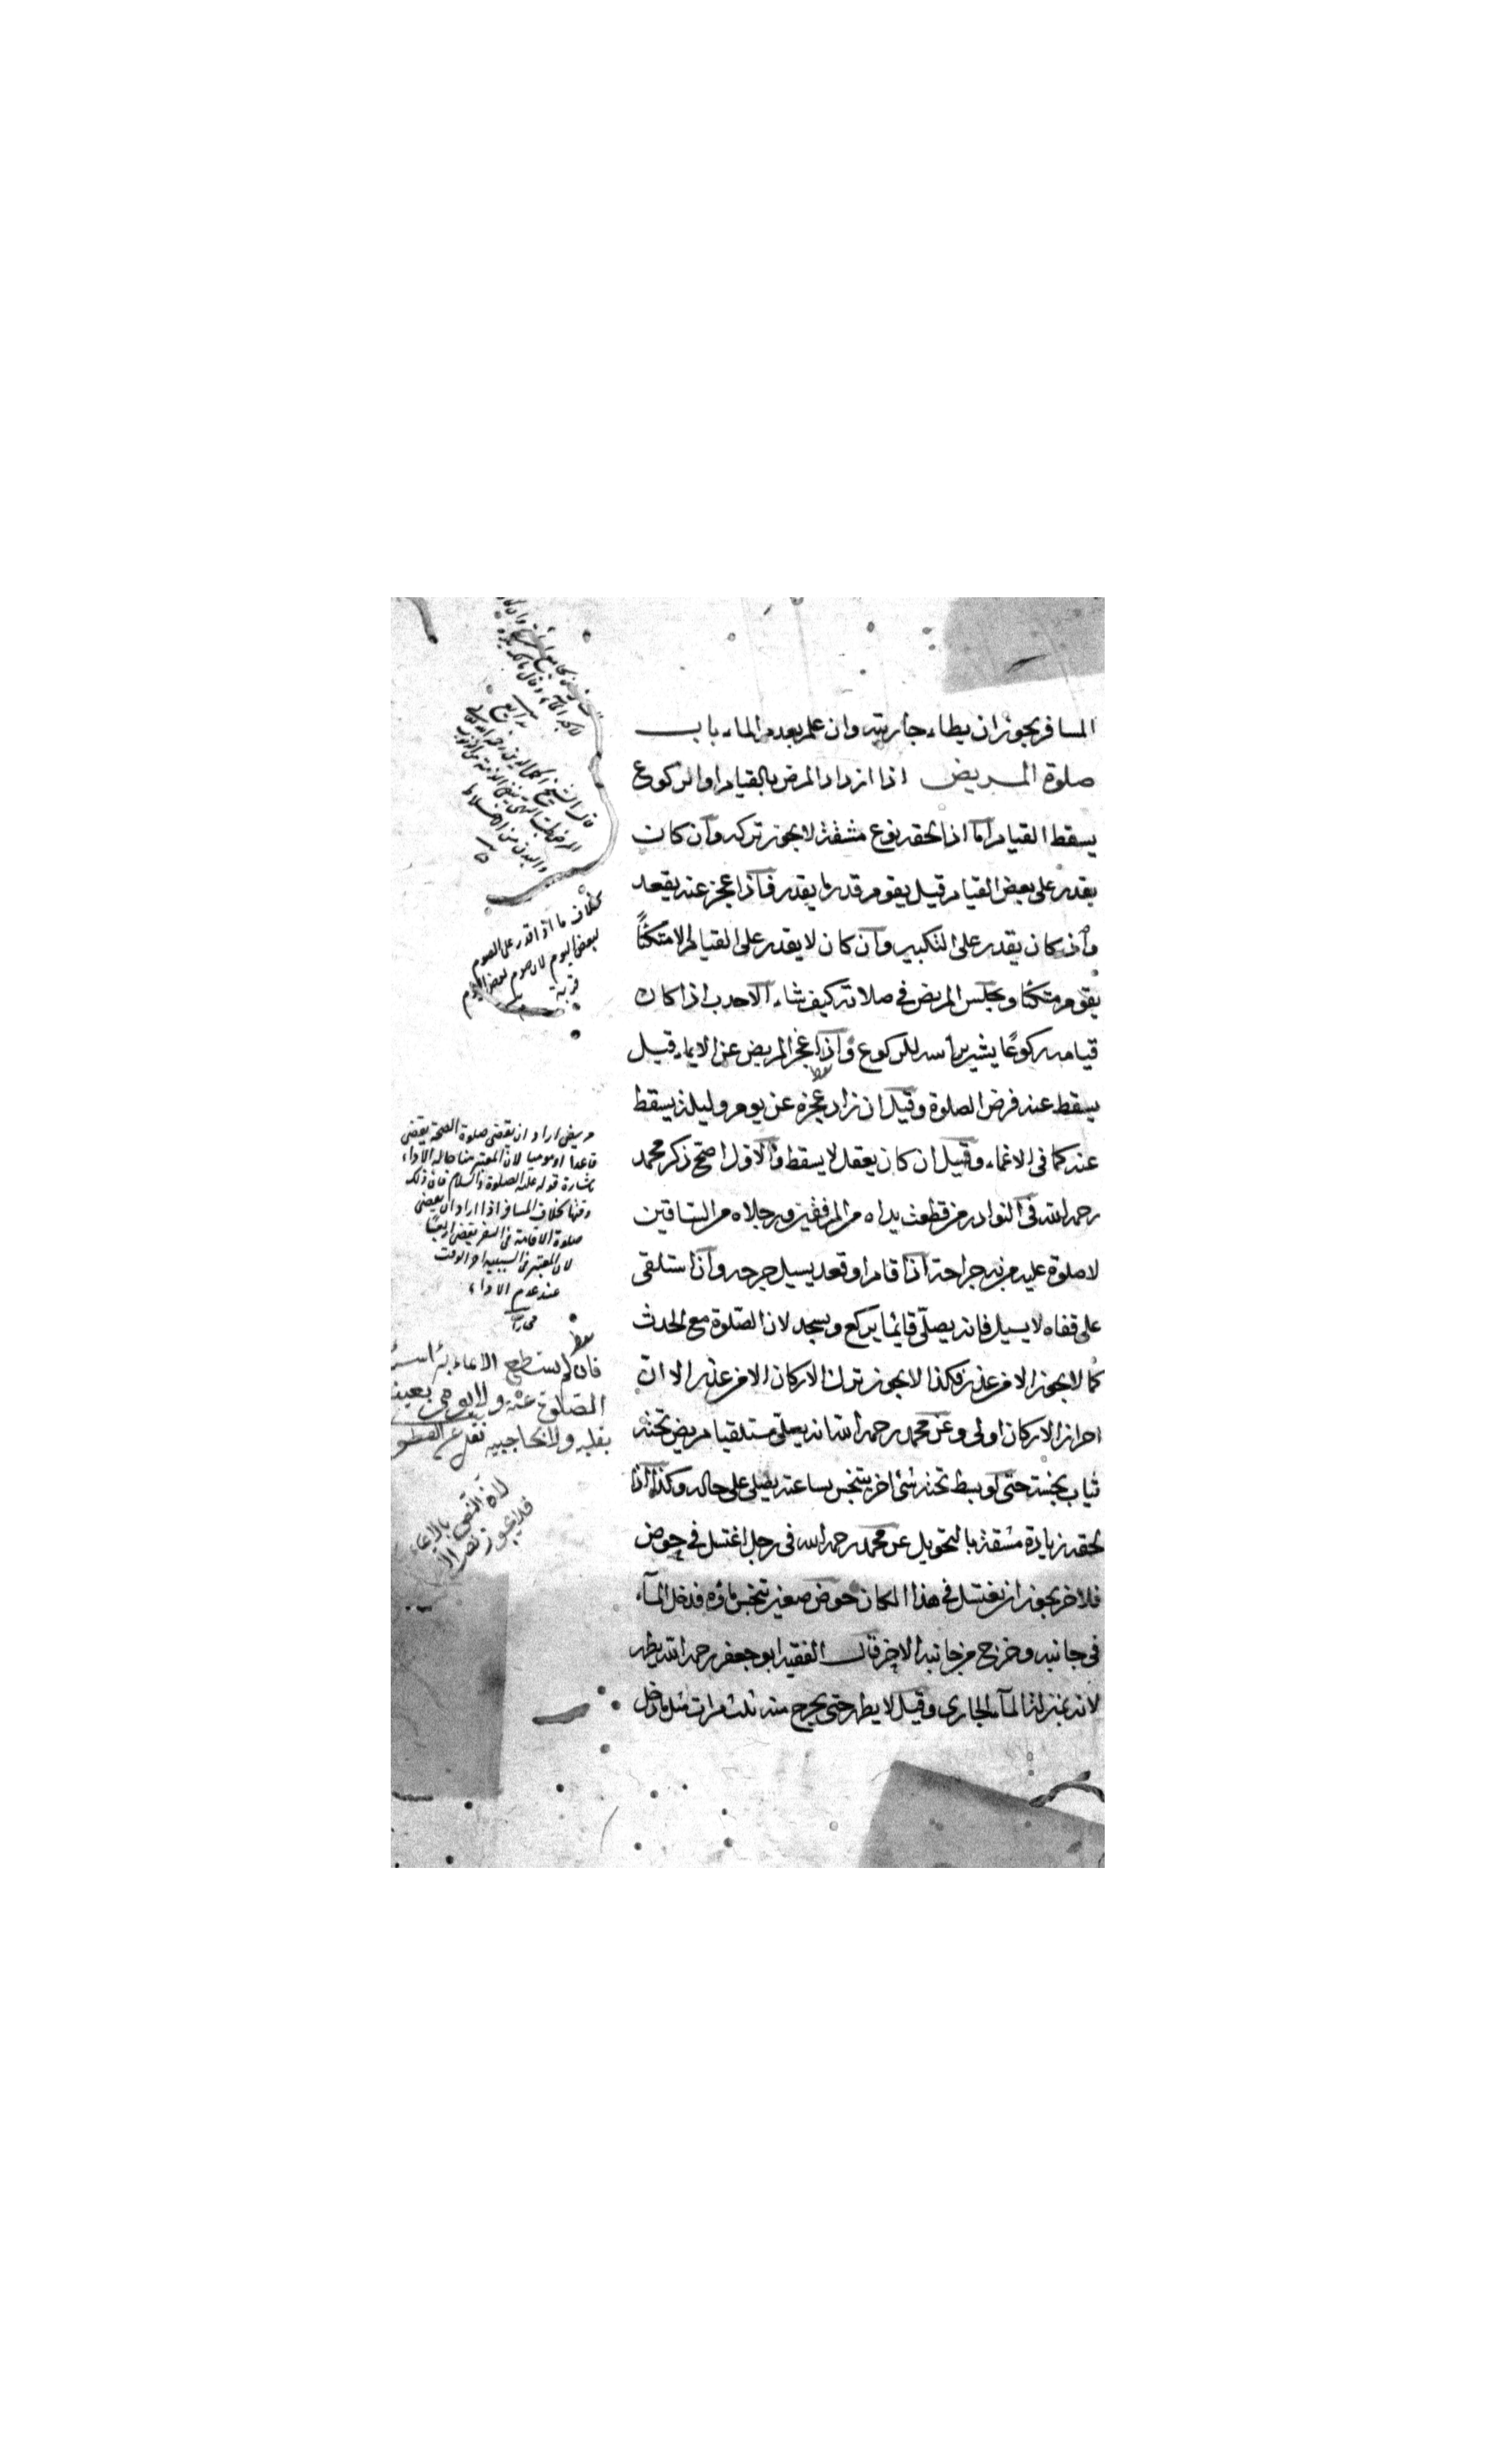 المسافر يجوز ان يطاء جاريته وان علم بعدم الماء باب
صلوة المريض اذا ازداد المرض بالقيام او الركوع
يسقط القيام اما اذا لحقه نوع مشقة لا يجوز تركه وان كان
يقدر على بعض القيام قيل يقوم قدر ما يقدر فاذا عجز عنه يقعد
وان كان يقدر على التكبير وان كان لا يقدر على القيام الا متكئًا
يقوم متكئا ويجلس المريض في صلاته كيف شاء الاحدب اذا كان
قيامه ركوعًا يشير برأسه للركوع واذا عجز المريض عن الايماء قيل
يسقط عنه فرض الصلوة وقيل ان زاد عجزه عن يوم وليلة يسقط
عنه كما في الاغماء وقيل ان كان يعقل لا يسقط والاول اصح ذكر محمد
رحمه الله في النوادر من قطعت يداه من المرفقين ورجلاه من الساقين
لا صلوة عليه من به جراحة اذا قام او قعد يسيل جرحه واذا استلقى
على قفاه لا يسيل فانه يصلّي قائما يركع ويسجد لان الصّلوة مع الحدث
كما لا يجوز الا من عذر فكذا لا يجوز ترك الاركان الا من عذر الا انّ
احراز الاركان اولى وعن محمد رحمه الله انه يصلّي مستلقيا مريض تحته
ثياب نجسة حتى لو بسط تحته شئ اخر يتنجس بساعته يصلي على حاله وكذا اذا
لحقه زيادة مشقة بالتحويل عن محمد رحمه الله في رجل اغتسل في حوض
فلاخر يجوز ان يغتسل في هذا المكان حوض صغير تنجس ماؤه فدخل المآء
في جانبه وخرج من جانبه الاخر قال الفقيه ابو جعفر رحمه الله يطهر
لانه بمنزلة المآء الجاري وقيل لا يطهر حتى يخرج منه ثلث مرات مثل ما دخل
بخلاف ما اذا قدر على الصوم
لبعض اليوم لان صوم بعض اليوم
قربة
مريض اراد ان يقضي صلوة الصحة يقضي
قاعدا او موميا لان المعتبر هنا حالة الاداء
باشارة قوله عليه الصلوة والسلام فان ذلك
وقتها بخلاف المسافر اذا اراد ان يقضي
صلوة الاقامة في السفر يقضي اربعًا
لان المعتبر في السببية اخر الوقت
عند عدم الاداء
فان لم يستطع الايماء برأسه
الصلوة عنه ولا يومي بعينه
بقلبه ولا بحاجبيه
لان النص بالايماء
فلا يجوز